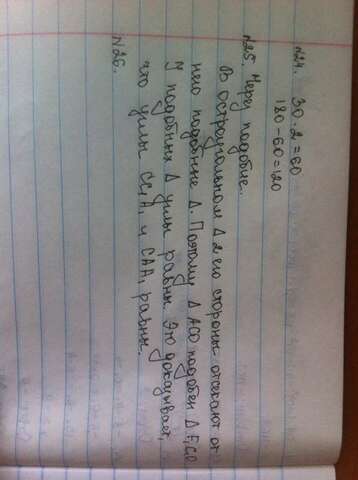 N24. 30·2=60
180-60=120
N25. Через подобие.
В остроугольном Δ 2 его стороны отсекают от
него подобные Δ. Поэтому Δ АСО подобен Δ
У подобных Δ углы равны. Это доказывает,
что углы СС₁А₁ и САА₁ равны.
N26.